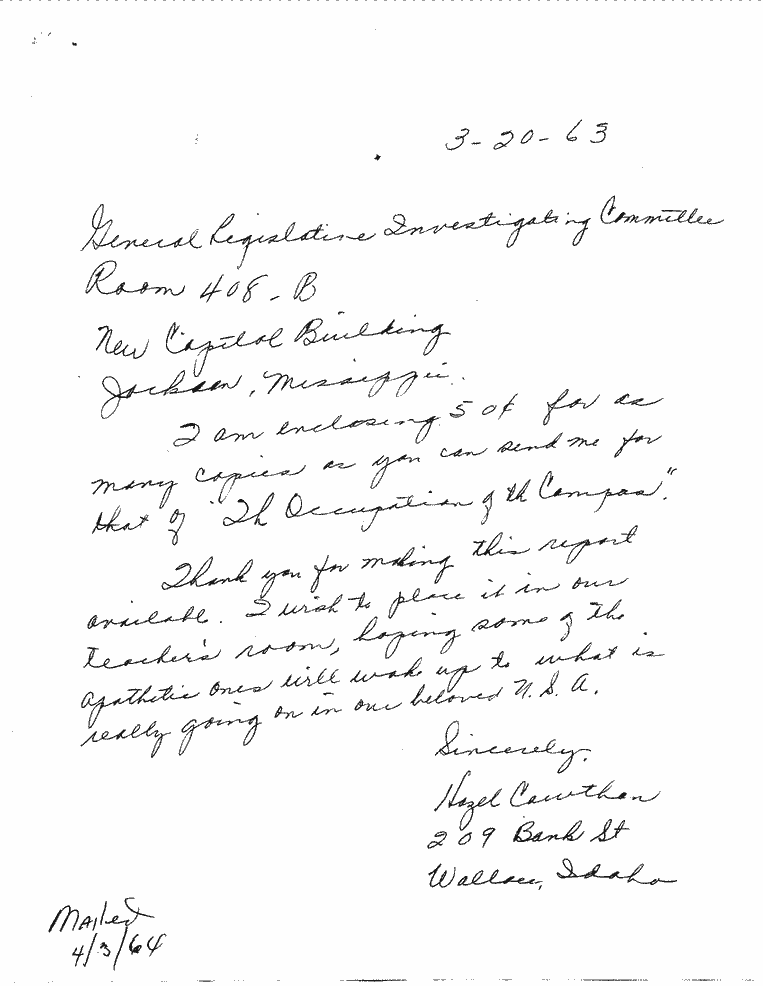 3-20-63
General Legislative Investigating Committee
Room 408-B
New Capitol Building
Jackson, Mississippi.
I am enclosing 50¢ for as
many copies as you can send me for
that of "Th Occupation of th Campas".
Thank you for making this report
available. I wish to place it in our
teacher's room, hoping some of the
apathetic ones will wake up to what is
really going on in our beloved U.S.A.
Sincerely,
Hazel Cawthon
209 Bank St
Wallace, Idaho
Mailed
4/3/64